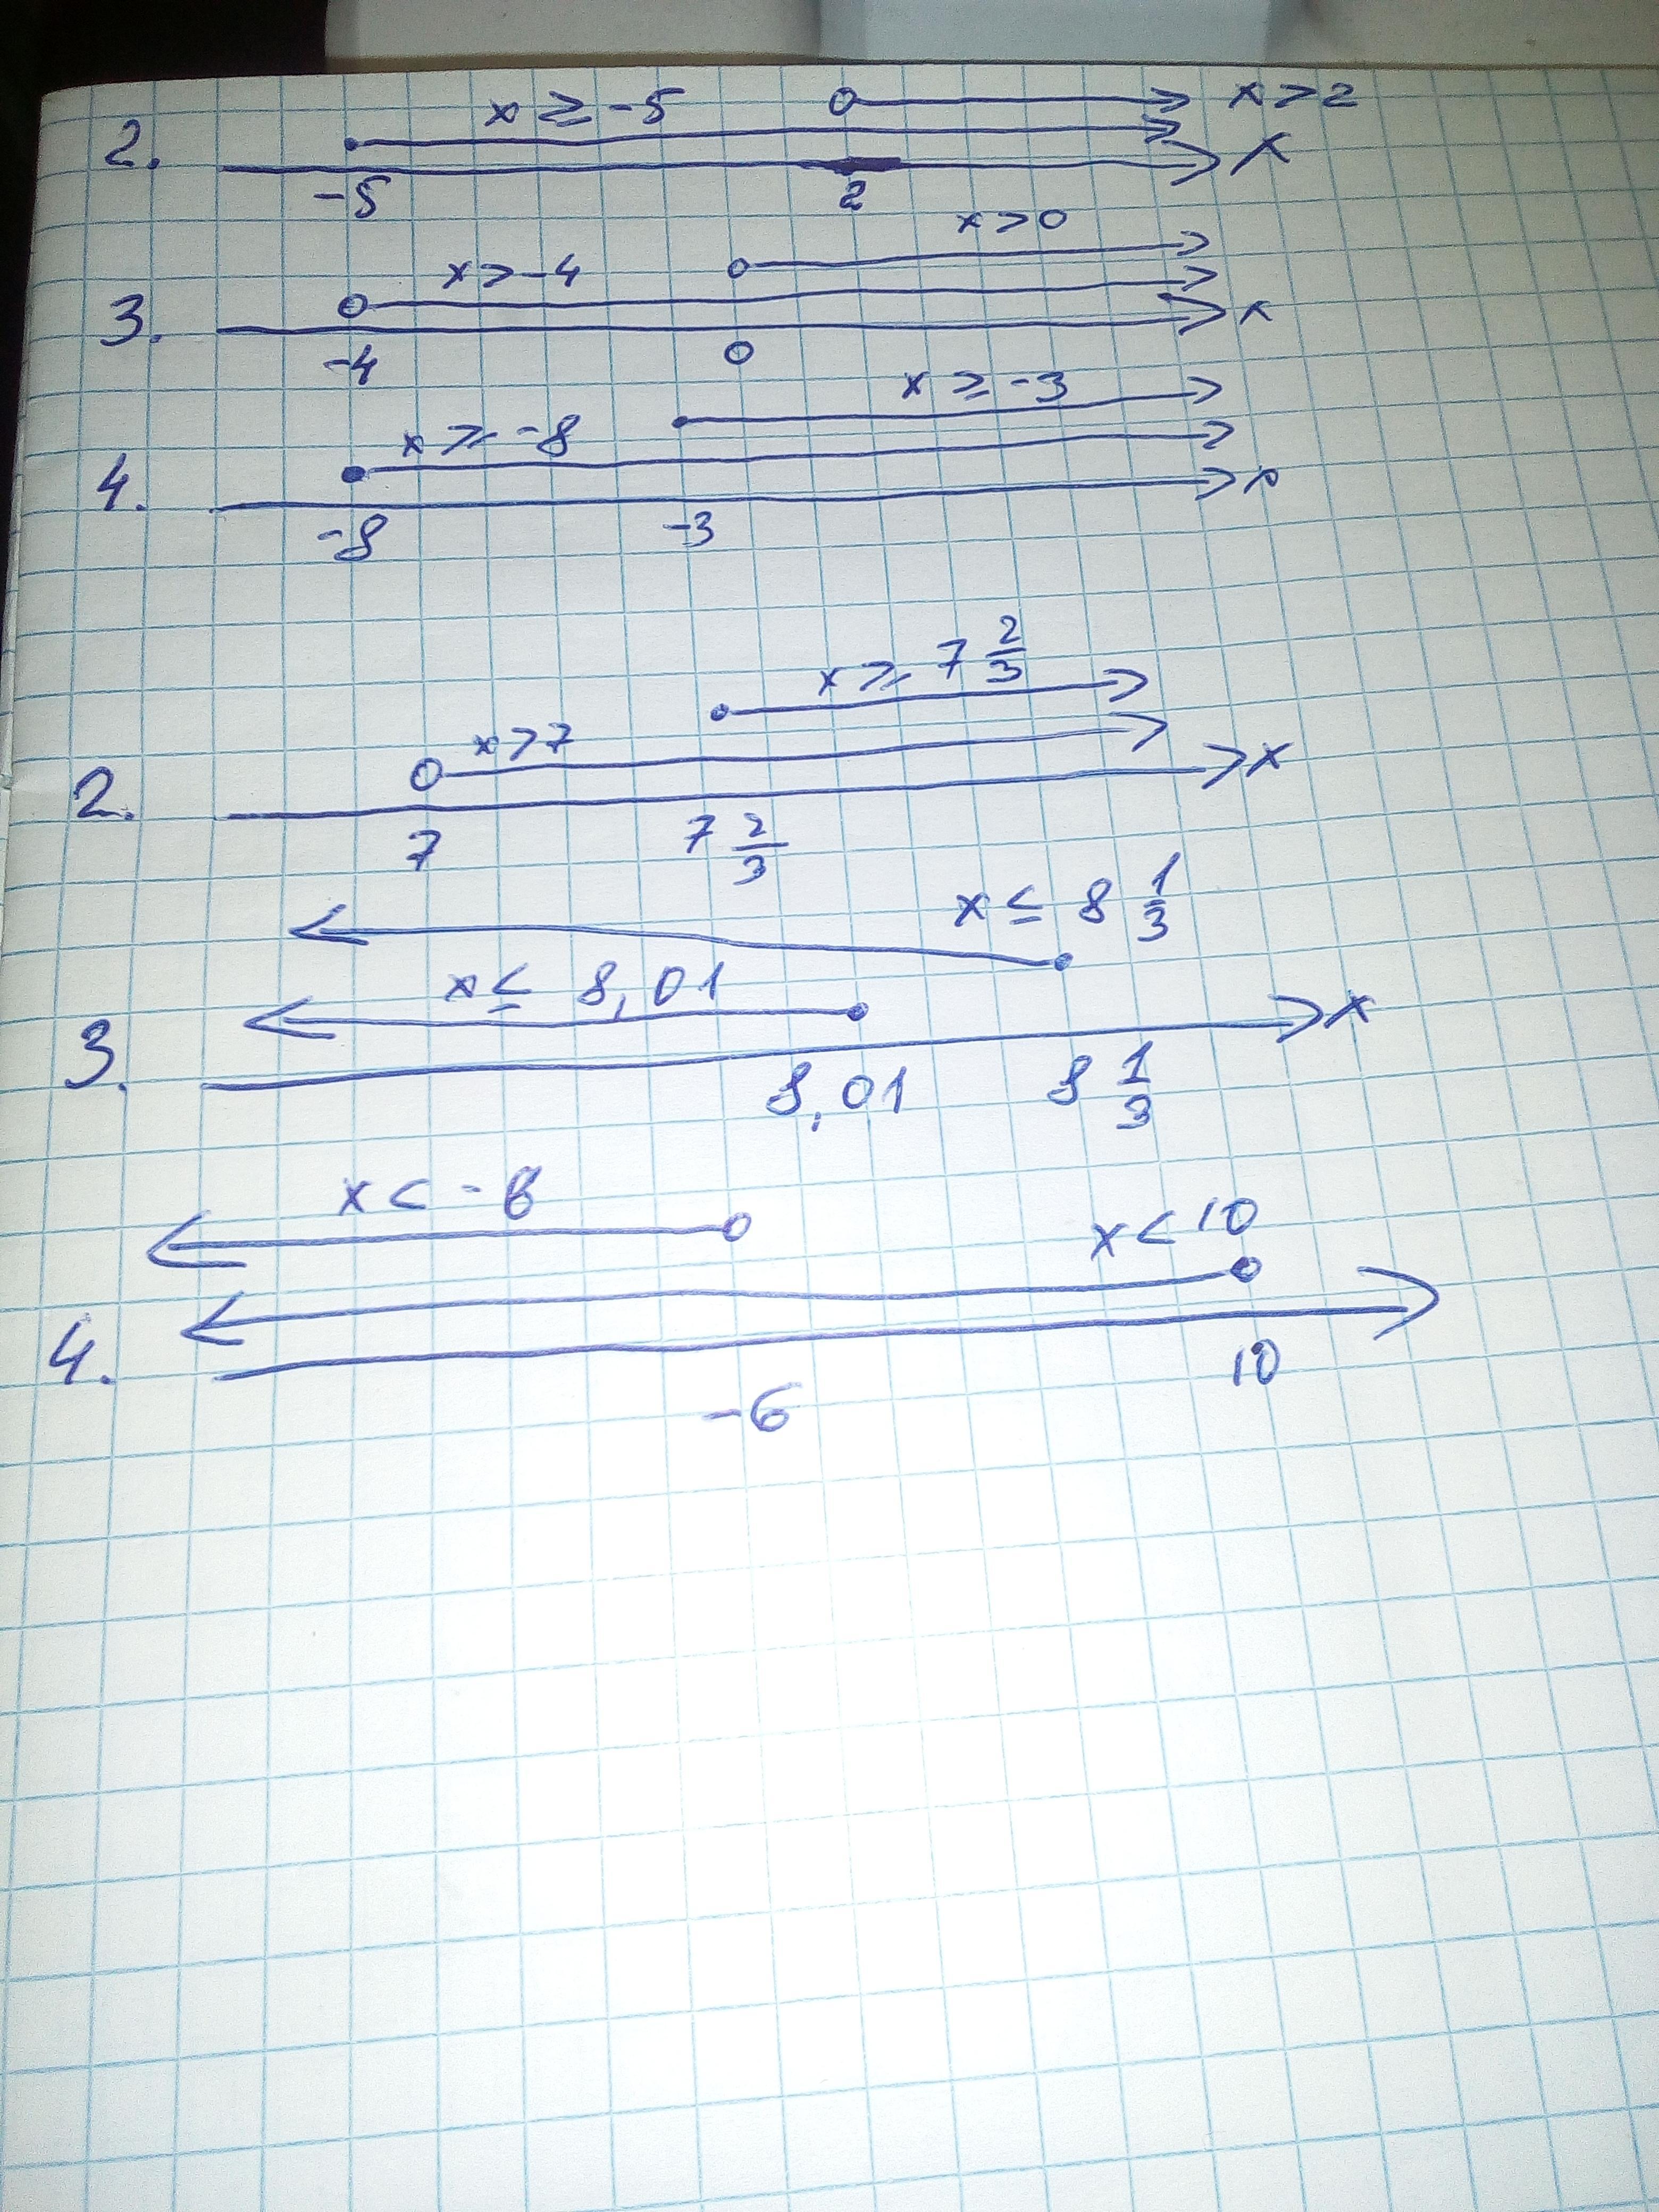 x ≥ -5 x > 2
2. x
-5 2
x > 0
x > -4
3. x
-4 0
x ≥ -3
x ≥ -8
4. x
-8 -3
x ≥ 7 2/3
x > 7
2. x
7 7 2/3
x ≤ 8 1/3
x ≤ 8,01
3. x
8,01 8 1/3
x < -6
x < 10
4.
-6 10